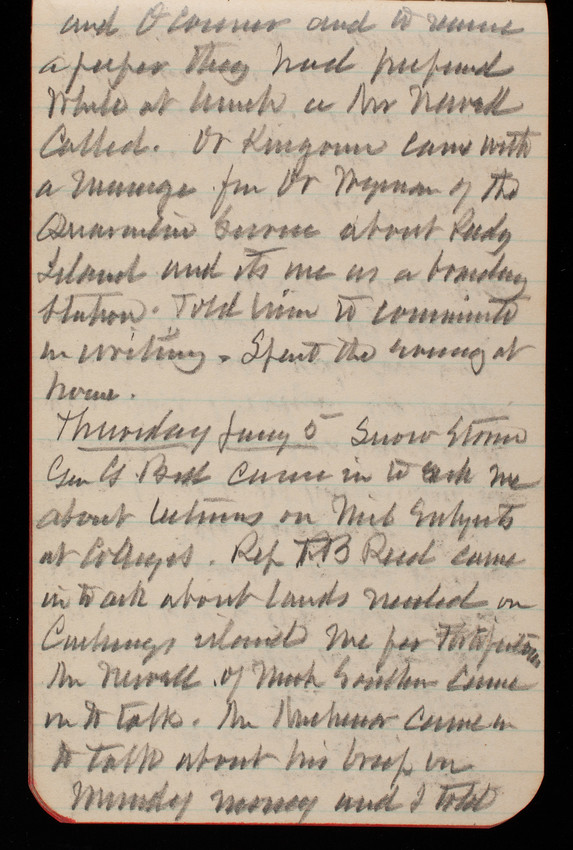 and O'Connor and to receive
a paper they had prepared
While at lunch a Mr Newell
Called. Dr Kingoun came with
a message from Dr Wyman of the
Quarantine Service about Reedy
Island and its use as a boarding
station. Told him to communicate
in writing. Spent the evening at
home.
Thursday Jany 5 Snow Storm
Gen G came in to ask me
about lectures on Mil Subjects
at Colleges. Rep T.B Reed came
in to ask about lands needed on
Cushings island Me for Fortifications
Mr Newell of came
in to talk. Mr came in
to talk about his brief in
Munday money and I told